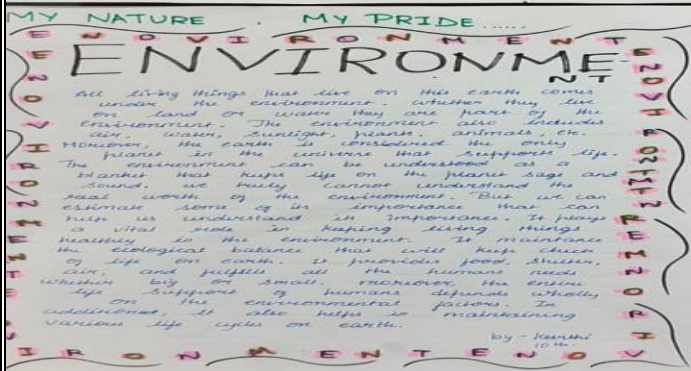 MY NATURE . MY PRIDE.....
ENOVIRONMENT
ENVIRONME-
NT
All living things that live on this earth comes
under the environment. whether they live
on land or water they are part of the
Environment. The environment also includes
air, water, sunlight, plants, animals, etc.
Moreover, the earth is considered the only
planet in the universe that supports life.
The environment can be understood as a
blanket that keeps life on the planet sage and
sound. we truly cannot understand the
real worth of the environment. But we can
estimate some of its importance that can
help us understand its importance. It plays
a vital role in keeping living things
healthy in the environment. It maintains
the ecological balance that will keep check
of life on earth. It provides food, shelter,
air, and fulfills all the humans needs
whether big or small. moreover, the entire
life support of humans depends wholly
on the environmental factors. In
additionest, it also helps in maintaining
various life cycles on earth.
by - Keerthi
10th